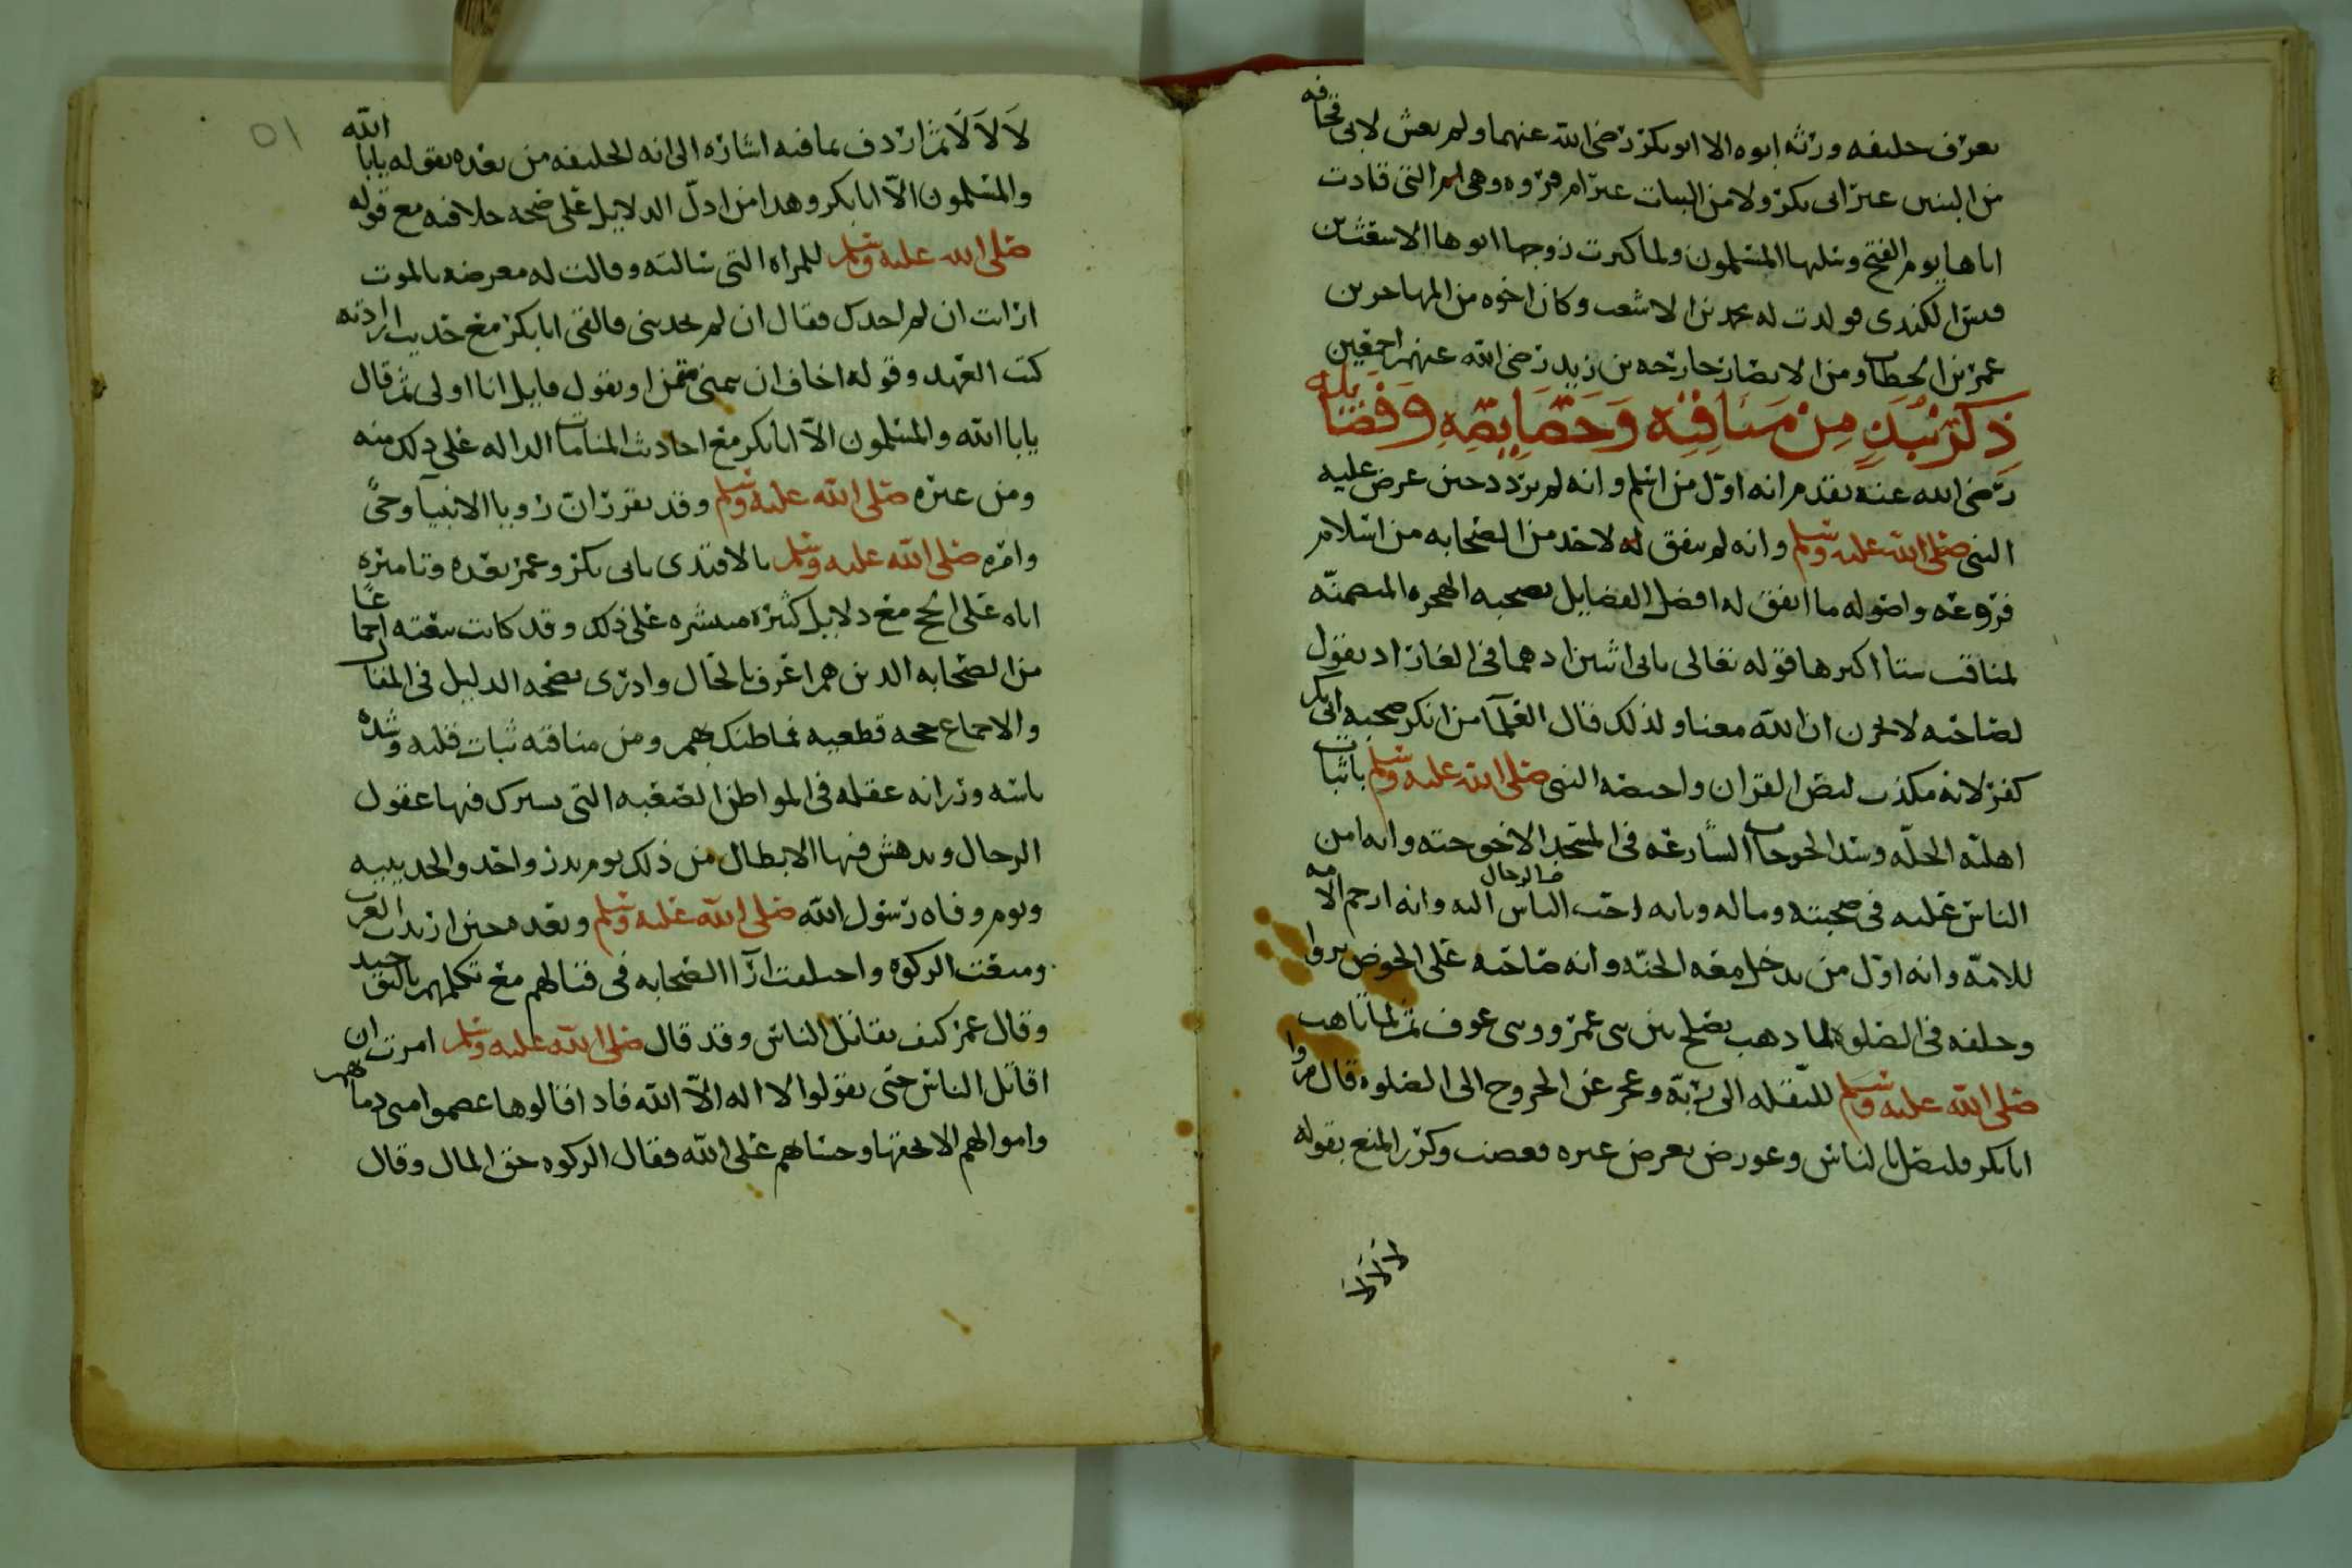 يعرف خليفه ورثه ابوه الا ابو بكر رضي الله عنهما ولم يعش لابي قحافه
من البنين غير ابي بكر ولا من البنات غير ام فروه وهي التي قادت
اياها يوم الفتح وسلبها المسلمون ولما كبرت زوجها ابوها الاشعث بن
قيس الكندي فولدت له محمد بن الاشعث وكان اخوه من المهاجرين
عمر بن الخطاب ومن الانصار خارجه بن زيد رضي الله عنهم اجمعين
ذكر نبذ من مناقبه وخصايصه وفضايله
رضي الله عنه تقدم انه اول من اسلم وانه لم يتردد حين عرض عليه
النبي صلى الله عليه وسلم وانه لم يتفق له لاحد من الصحابه من اسلام
فروعه واصوله ما اتفق له افضل الفضايل صحبه الهجره المتضمنه
لمناقب ستا اكبرها قوله تعالى ثاني اثنين اذ هما في الغار اذ يقول
لصاحبه لا تحزن ان الله معنا ولذلك قال العلما من انكر صحبه ابي بكر
كفر لانه مكذب لنص القران واختصه النبي صلى الله عليه وسلم باثبات
اهليه الخله وسد الخوخات الشارعه في المسجد الا خوخته وانه امن
الناس عليه في صحبته وماله وبانه احب الناس اليه من الرجال وانه ارحم الامه
للامه وانه اول من يدخل معه الجنه وانه صاحبه على الحوض
وخلفه في الصلوه لما ذهب يصلح بين بني عمرو وبني عوف ثم لما تاهب
صلى الله عليه وسلم للنقله الى ربه وعجز عن الخروج الى الصلوه قال مروا
ابا بكر فليصل بالناس وعورض بعرض غيره فغضب وكرر المنع بقوله
لا لا لا
٥١
لا لا لا ثم اردف بما فيه اشاره الى انه الخليفه من بعده بقوله يابا الله
والمسلمون الا ابا بكر وهذا من ادل الدلايل على صحه خلافته مع قوله
صلى الله عليه وسلم للمراه التي سالته وقالت له معرضه بالموت
ارايت ان لم اجدك فقال ان لم تجديني فالقي ابا بكر مع حديث ارادته
كتب العهد وقوله اخاف ان يتمنى متمن او يقول قايل انا اولى ثم قال
يابا الله والمسلمون الا ابا بكر مع احاديث المنامات الداله على ذلك منه
ومن غيره صلى الله عليه وسلم وقد تقرر ان رويا الانبيا وحي
وامره صلى الله عليه وسلم بالاقتدى بابي بكر وعمر بعده وتاميره
اياه على الحج مع دلايل كثيره منتشره على ذلك وقد كانت بيعته اجماعا
من الصحابه الذين هم اعرف بالحال وادرى بصحه الدليل في المقال
والاجماع حجه قطعيه فما ظنك بهم ومن مناقبه ثبات قلبه وشده
باسه ورزانه عقله في المواطن الصعبه التي فيها عقول
الرجال ويدهش فيها الابطال من ذلك يوم بدر واحد والحديبيه
ويوم وفاه رسول الله صلى الله عليه وسلم وبعده حين ارتدت العرب
ومنعت الزكوه واختلفت ارا الصحابه في قتالهم مع تكلمهم بالتوحيد
وقال عمر كيف تقاتل الناس وقد قال صلى الله عليه وسلم امرت ان
اقاتل الناس حتى يقولوا لا اله الا الله فاذا قالوها عصموا مني دماهم
واموالهم الا بحقها وحسابهم على الله فقال الزكوه حق المال وقال